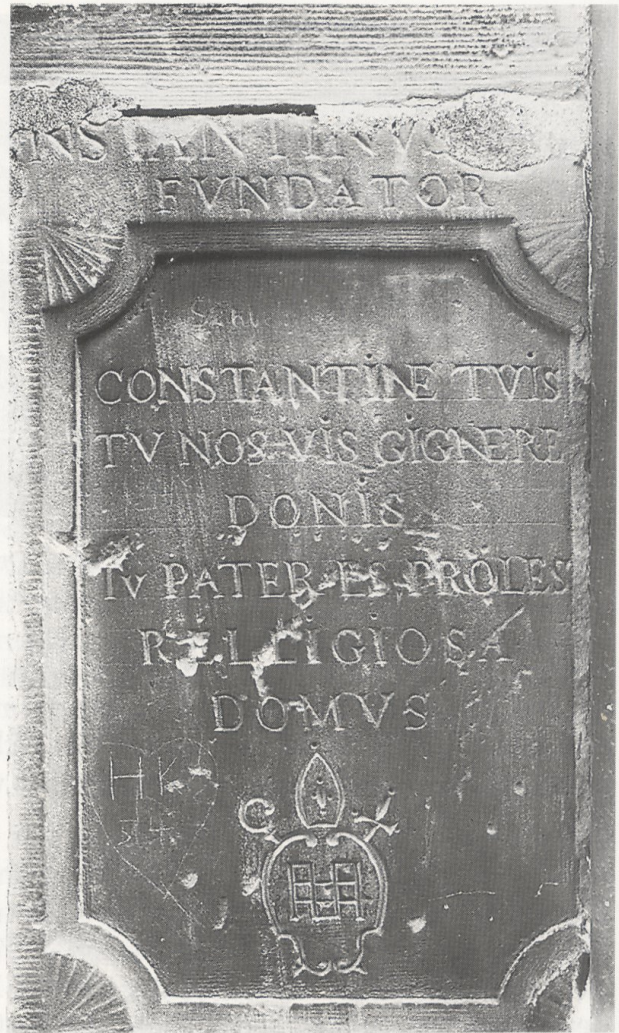 NSTANTINVS
FVNDATOR
CONSTANTINE TVIS
TV NOS VIS GIGNERE
DONIS
TV PATER ES PROLES
RELLIGIOSA
DOMVS
HK
54